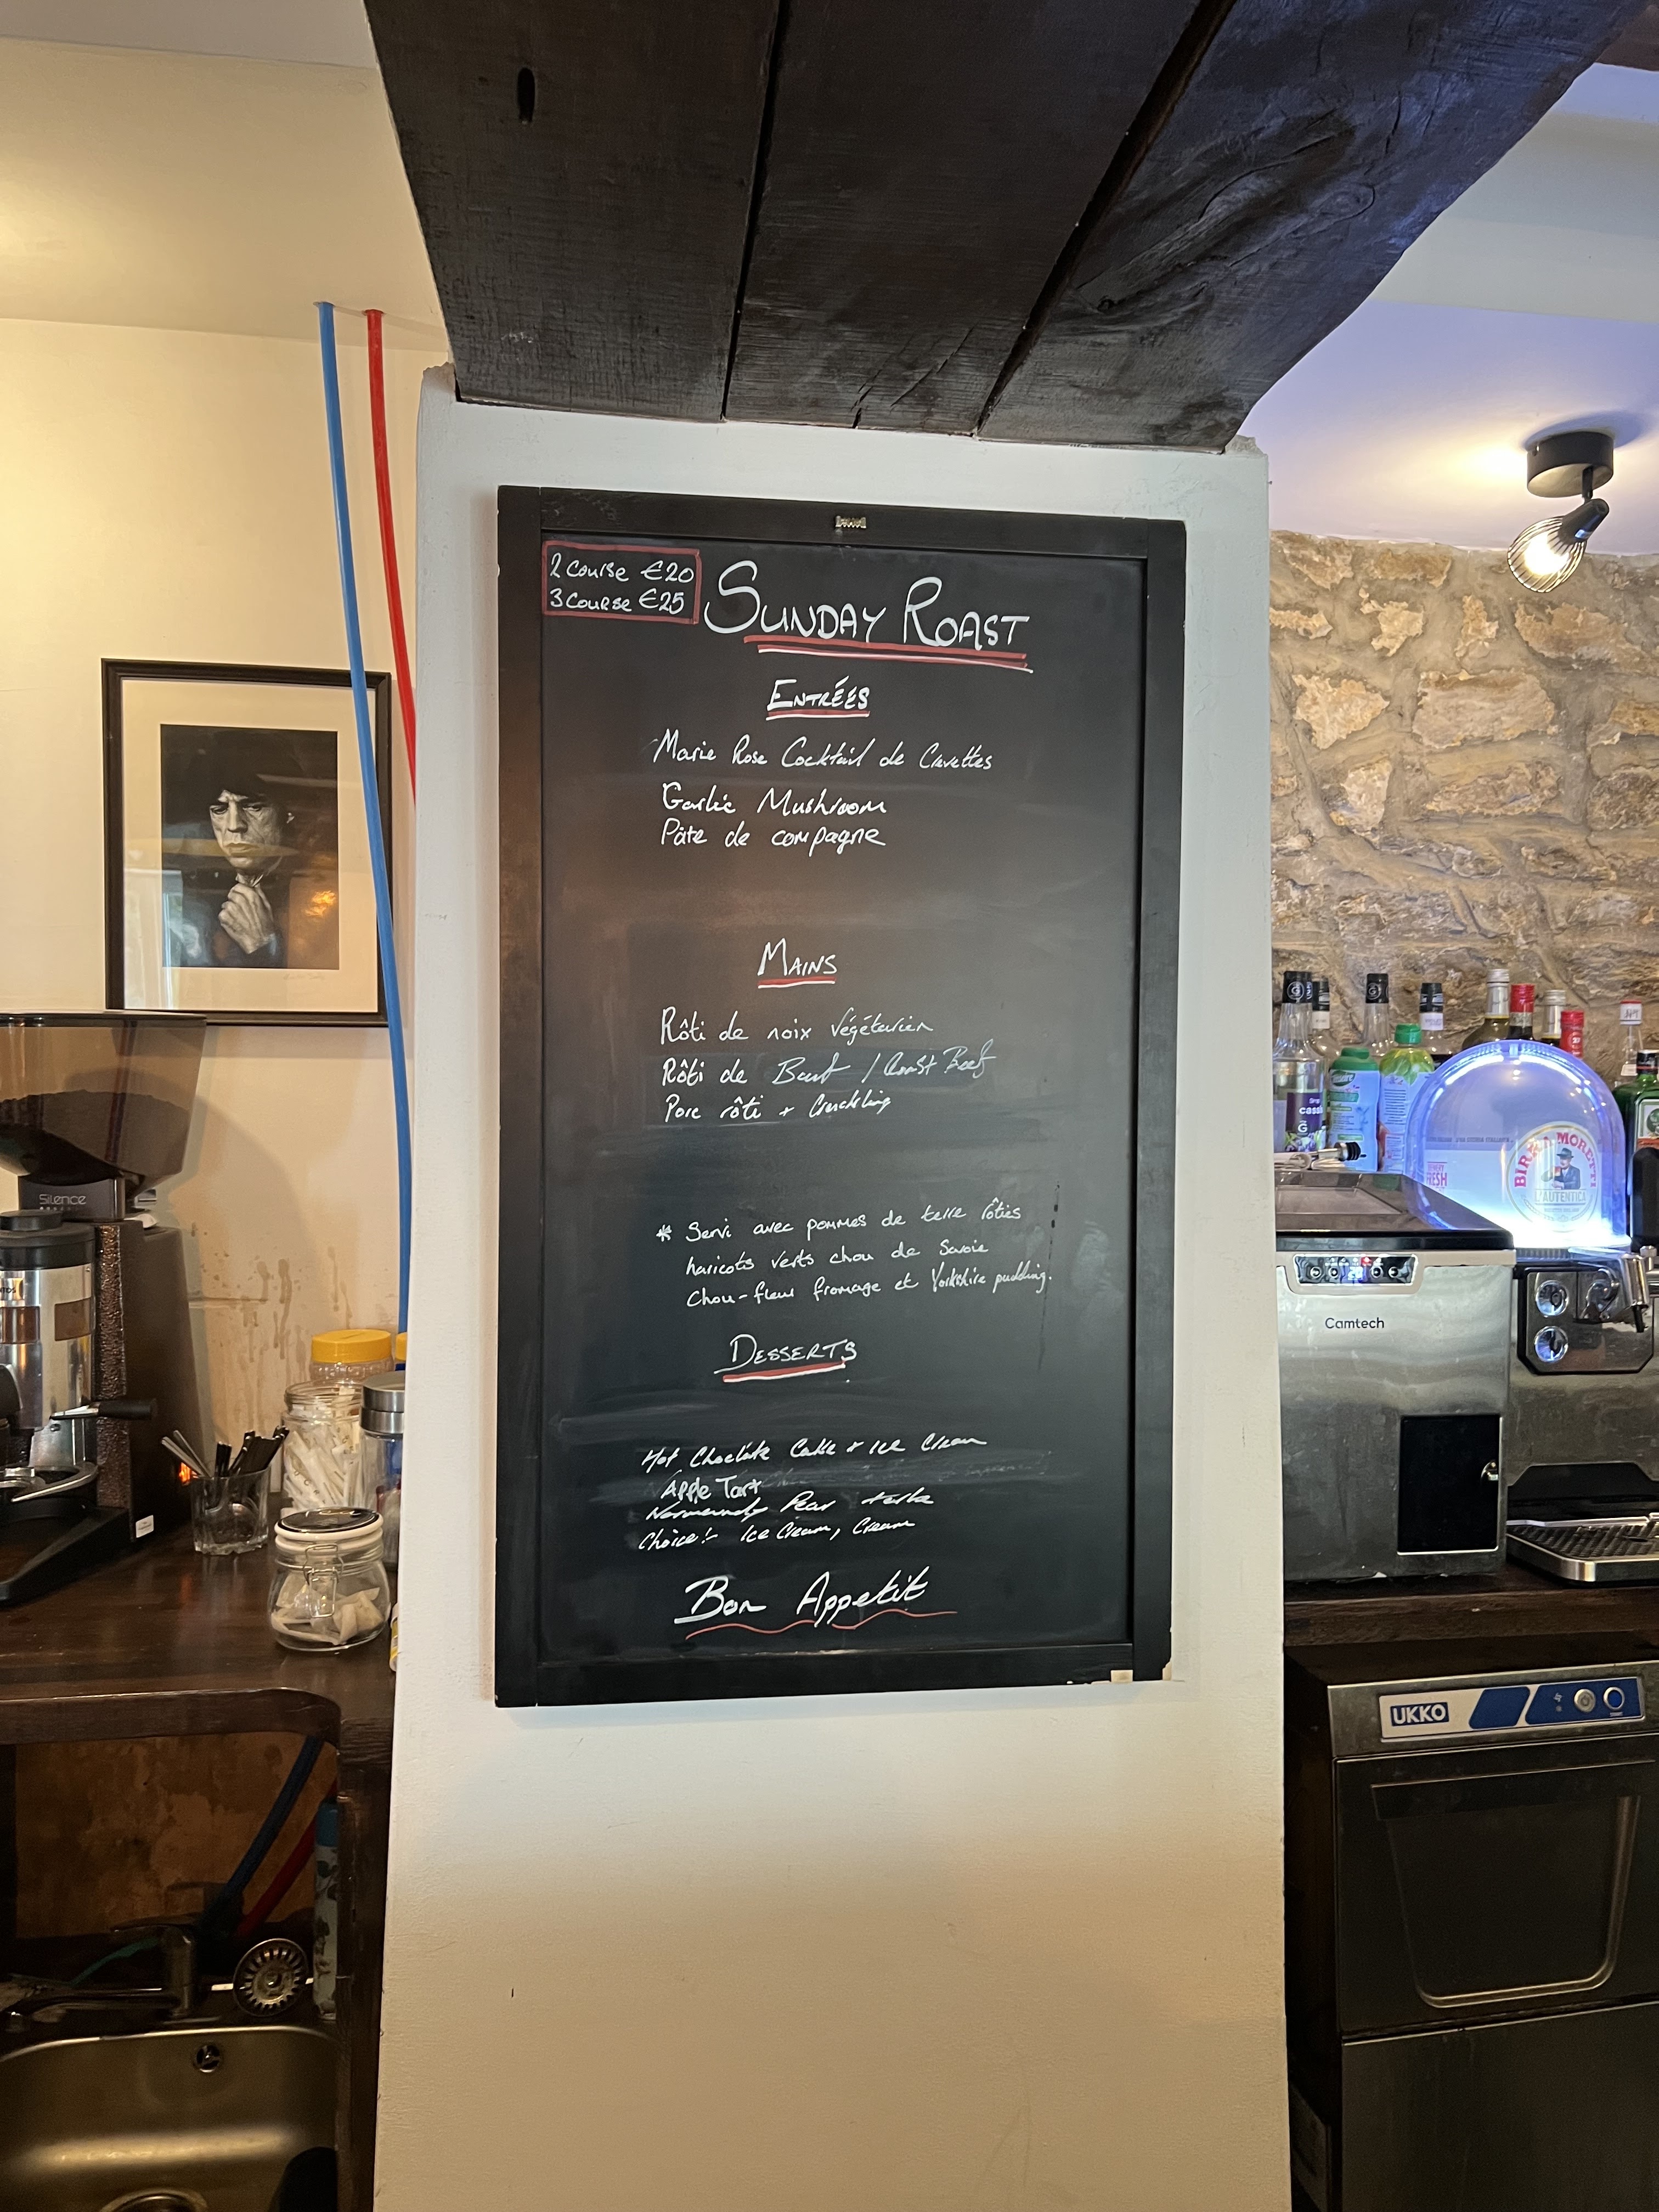 2 Course €20
3 Course €25
SUNDAY ROAST
ENTRÉES
Marie Rose Cocktail de Crevettes
Garlic Mushroom
Pâte de compagne
MAINS
Rôti de noix végétarien
Rôti de Bœuf / Roast Beef
Porc rôti + Crackling
* Servi avec pommes de terre rôties
haricots verts chou de Savoie
Chou-fleur fromage et Yorkshire pudding.
DESSERTS
Hot Choclate Cake + Ice Cream
Apple Tart
Normandy Pear
Choice:- Ice Cream, Cream
Bon Appetit
Silence
BIRRA MORETTI
L'AUTENTICA
Camtech
UKKO